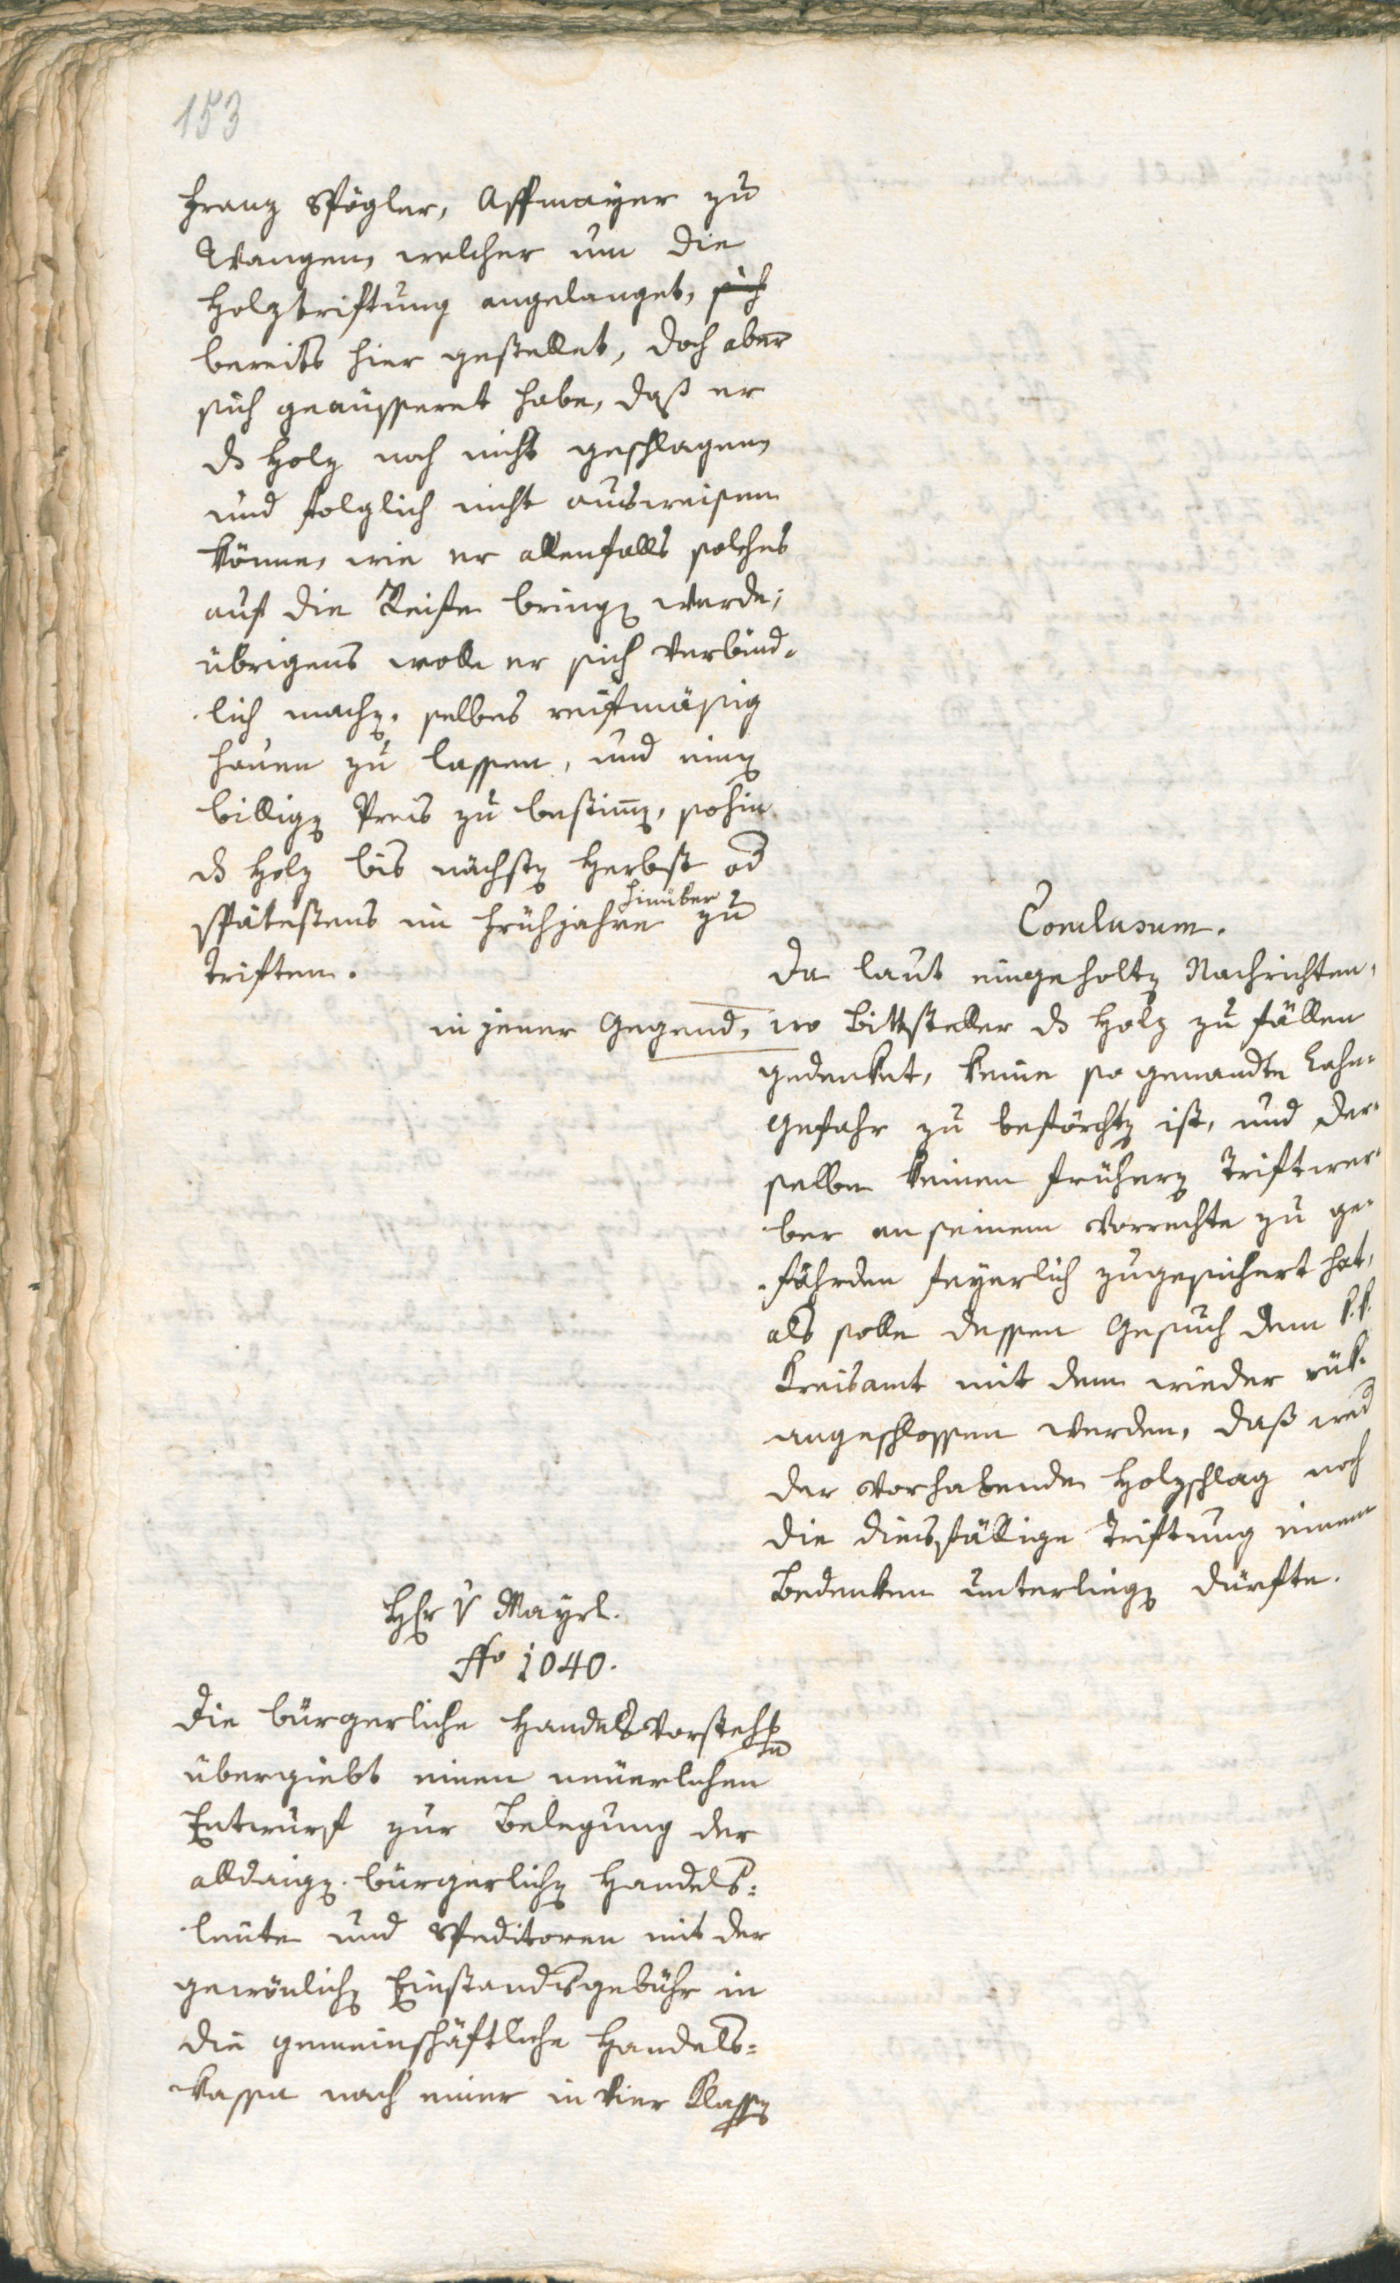 153
Franz Spögler, Affmayer zu
Wangen, welcher um die
Holztriftung angelanget, sich
bereits hier gestellet, doch aber
sich geäusseret habe, daß er
ds Holz noch nicht geschlagen,
und folglich nicht ausweisen
könne, wie er allenfalls solches
auf die Reife bringen werde;
übrigens wolle er sich verbind-
lich machen, selbes reifmäsig
hauen zu lassen, und einen
billigen Preis zu bestimen, sohin
ds Holz bis nächsten Herbst od
hinüber
spätestens im Frühjahre zu
triften.
Conclusum.
Da laut eingeholten Nachrichten,
in jener Gegend, wo Bittsteller ds Holz zu fällen
gedenket, keine so genandte Lahn-
gefahr zu beförchten ist, und der-
selbe keinen früheren Triftwer-
ber an seinem Vorrechte zu ge-
fährden feyerlich zugesichert hat,
als solle dessen Gesuch dem k.k.
Kreisamt mit dem wieder rük-
angeschlossen werden, daß wed
der vorhabende Holzschlag noch
die diesfällige Triftung einem
Bedenken unterliegen dürfte.
Hr v Mayrl.
No 1040.
Die bürgerliche Handelsvorstehung
übergiebt einen neuerlichen
Entwurf zur Belegung der
alldaigen bürgerlichen Handels-
leute und Speditoren mit der
gewönlichen Einstandsgebühr in
die gemeinschäftliche Handels-
kassa nach einer in vier Klassen